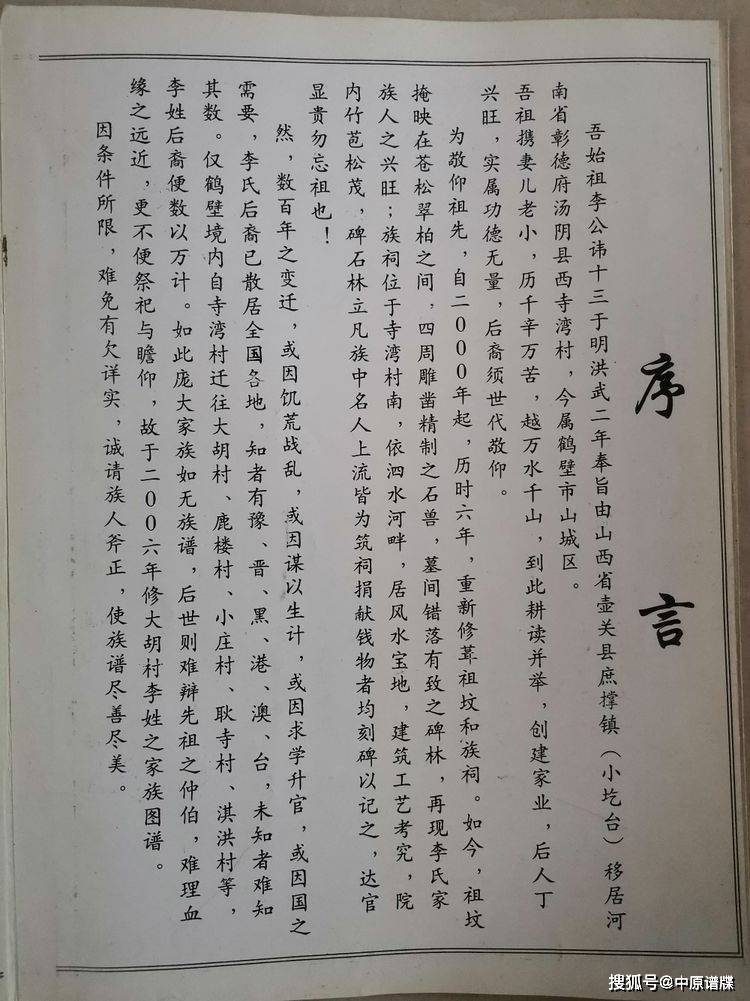 序言
吾始祖李公讳十三于明洪武二年奉旨由山西省壶关县庶撑镇（小圪台）移居河
南省彰德府汤阴县西寺湾村，今属鹤壁市山城区。
吾祖携妻儿老小，历千辛万苦，越万水千山，到此耕读并举，创建家业，后人丁
兴旺，实属功德无量，后裔须世代敬仰。
为敬仰祖先，自二000年起，历时六年，重新修葺祖坟和族祠。如今，祖坟
掩映在苍松翠柏之间，四周雕凿精制之石兽，墓间错落有致之碑林，再现李氏家
族人之兴旺；族祠位于寺湾村南，依泗水河畔，居风水宝地，建筑工艺考究，院
内竹苞松茂，碑石林立凡族中名人上流皆为筑祠捐献钱物者均刻碑以记之，达官
显贵勿忘祖也！
然，数百年之变迁，或因饥荒战乱，或因谋以生计，或因求学升官，或因国之
需要，李氏后裔已散居全国各地，知者有豫、晋、黑、港、澳、台，未知者难知
其数。仅鹤壁境内自寺湾村迁往大胡村、鹿楼村、小庄村、耿寺村、淇洪村等，
李姓后裔便数以万计。如此庞大家族如无族谱，后世则难辩先祖之仲伯，难理血
缘之远近，更不便祭祀与瞻仰，故于二00六年修大胡村李姓之家族图谱。
因条件所限，难免有欠详实，诚请族人斧正，使族谱尽善尽美。
搜狐号@中原谱牒